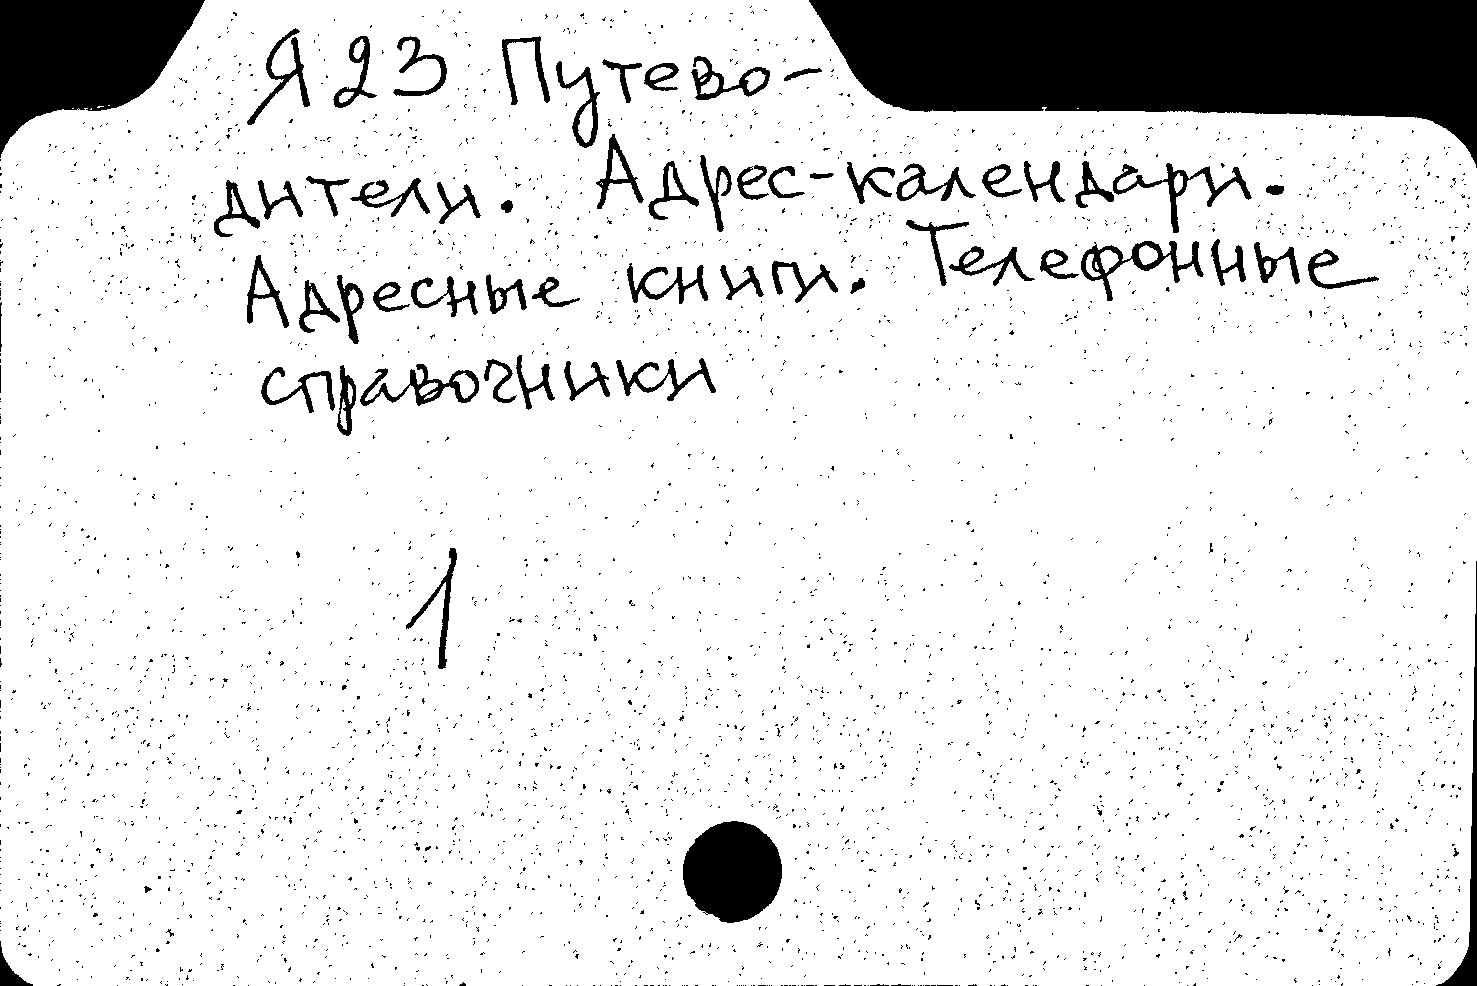 Я23 Путево-
дители. Адрес-календари.
Адресные книги. Телефонные
справочники
1